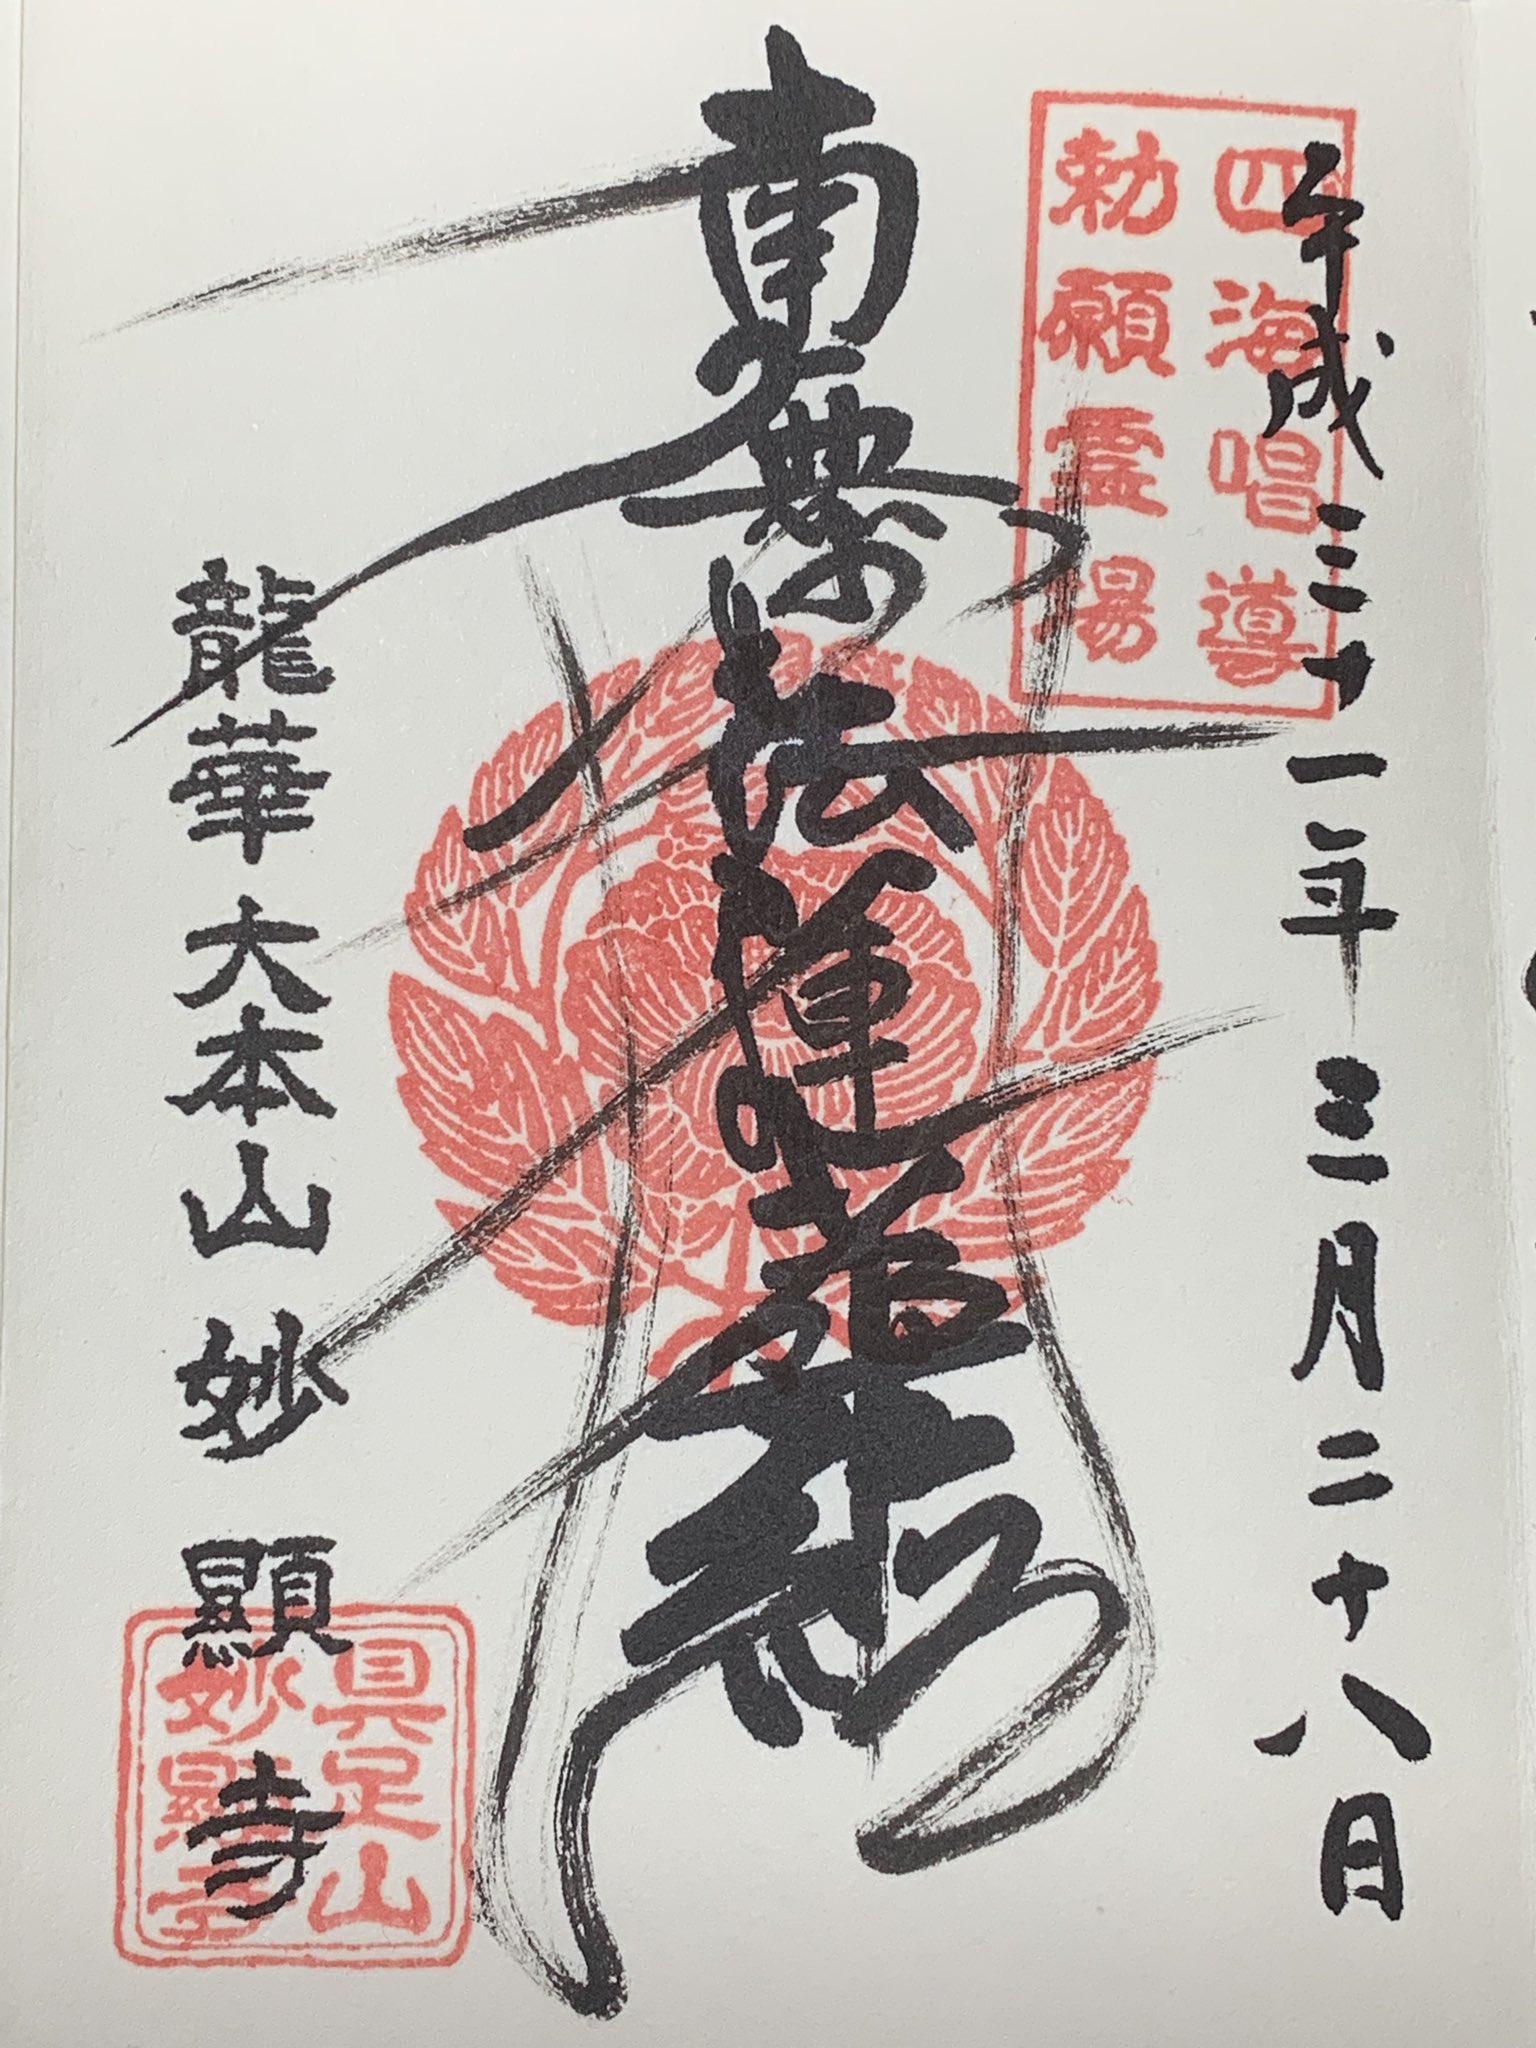 四海唱導
勅願霊場
平成三十一年三月二十八日
南無妙法蓮華経
龍華大本山妙顯寺
具足山
妙顯寺